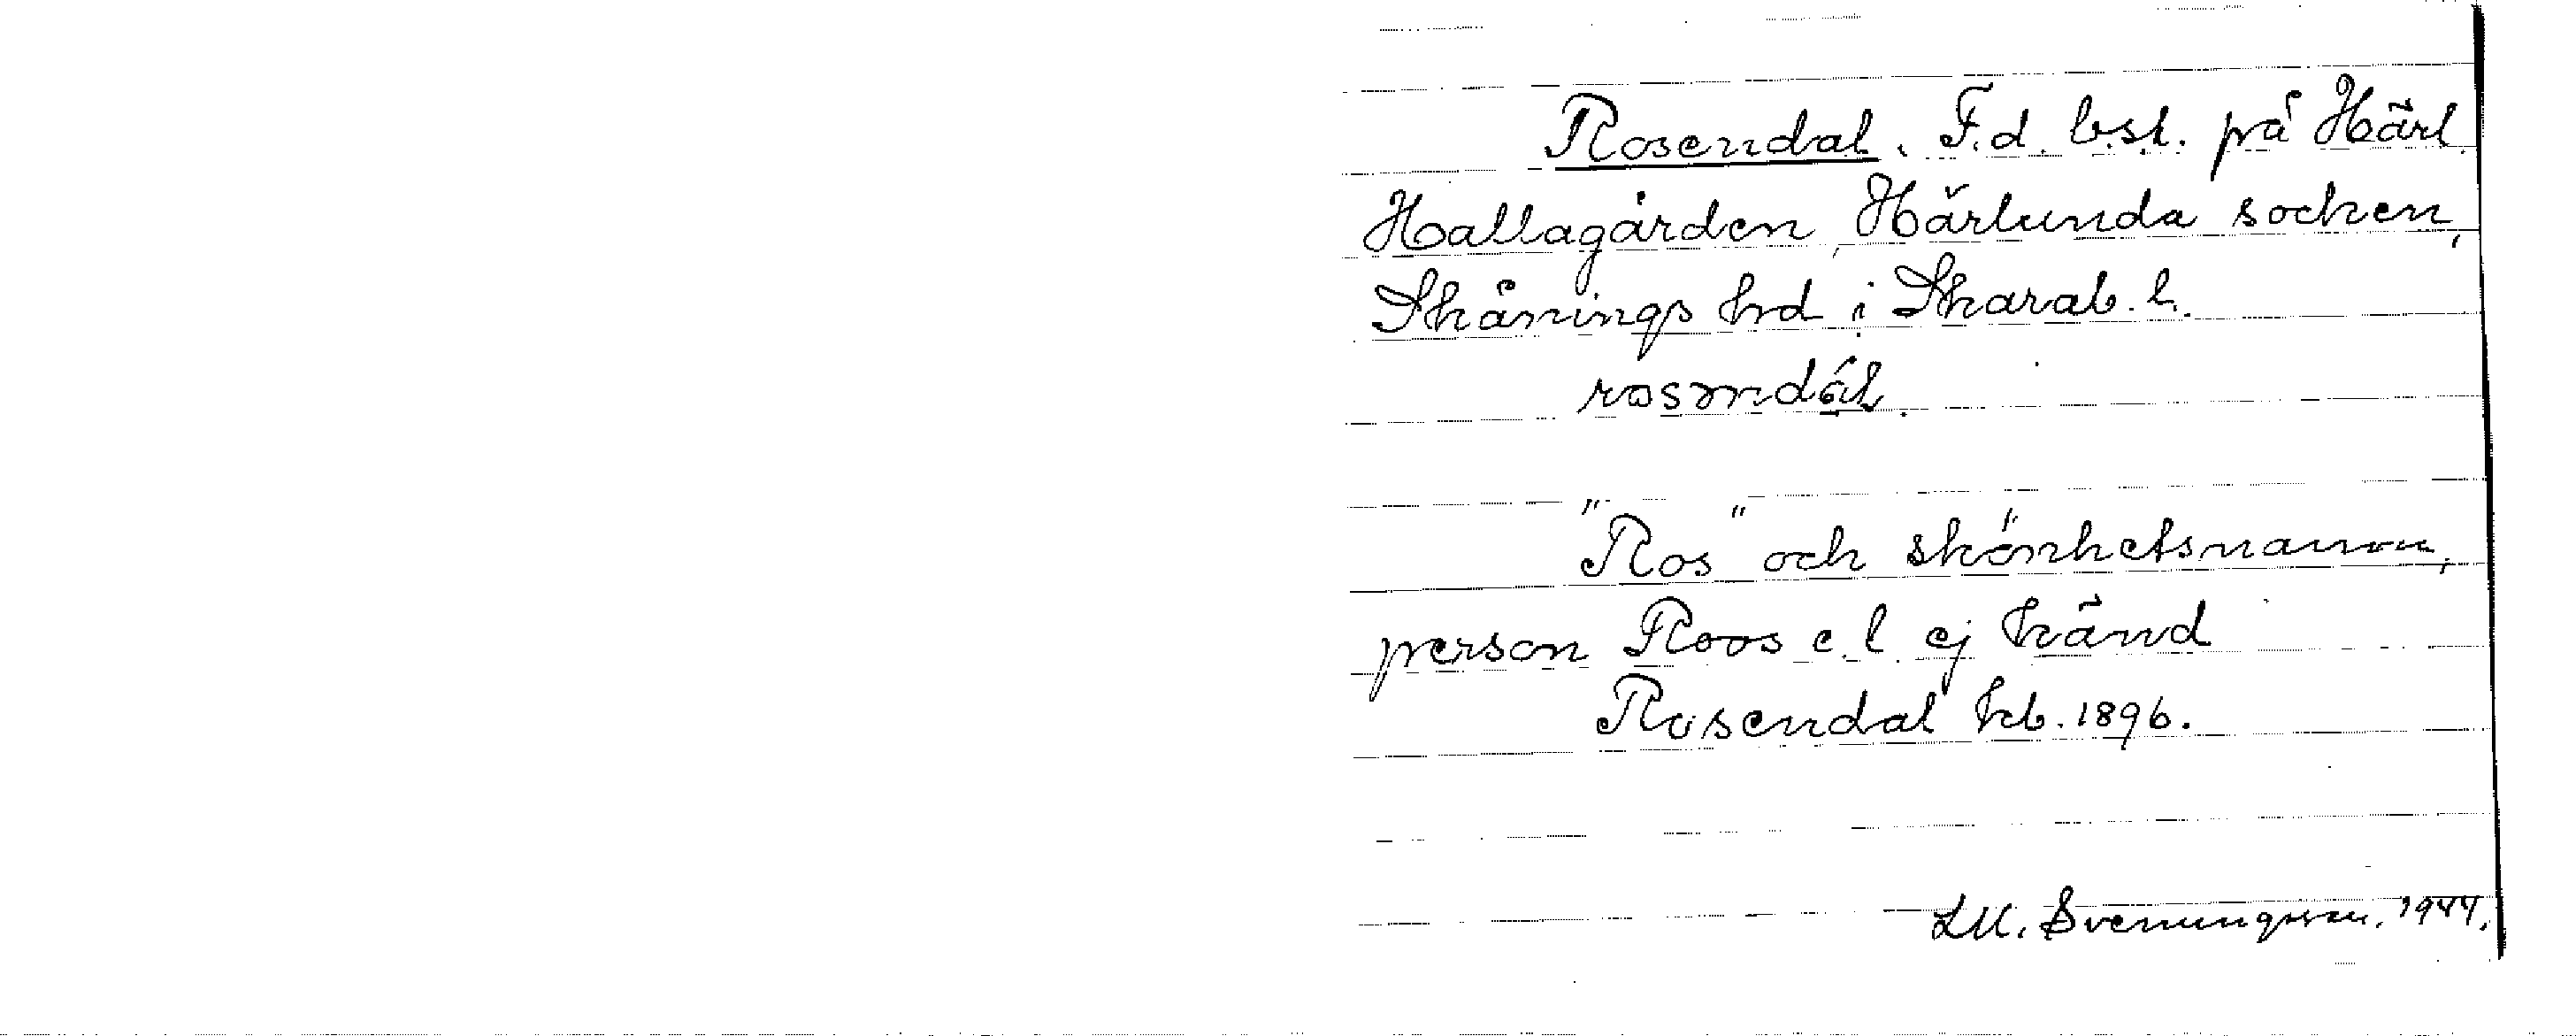 Rosendal. F.d. bst. på Härl.
Hallagården, Härlunda socken,
Skånings hrd i Skarab. l.
rosəndáL.
"Ros" och skönhetsnamn,
person Roos e.l. ej känd
Rosendal kb. 1896.
LM. Svenungsson. 1944.